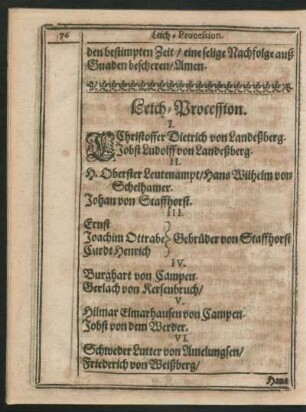 76 Leich-Procession.
den bestimpten Zeit / eine selige Nachfolge auß
Gnaden bescheren / Amen.
Leich-Procession.
I.
Christoffer Dietrich von Landeßberg.
Jobst Ludolff von Landeßberg.
II.
H. Oberster Leutenampt / Hans Wilhelm von
Schelhamer.
Johan von Staffhorst.
III.
Ernst
Joachim Ottrabe } Gebrüder von Staffhorst
Curdt Henrich
IV.
Burghart von Campen.
Gerlach von Kersenbruch /
V.
Hilmar Elmarhausen von Campen.
Jobst von dem Werder.
VI.
Schweder Lutter von Amelungsen /
Friederich von Weißberg /
Hans